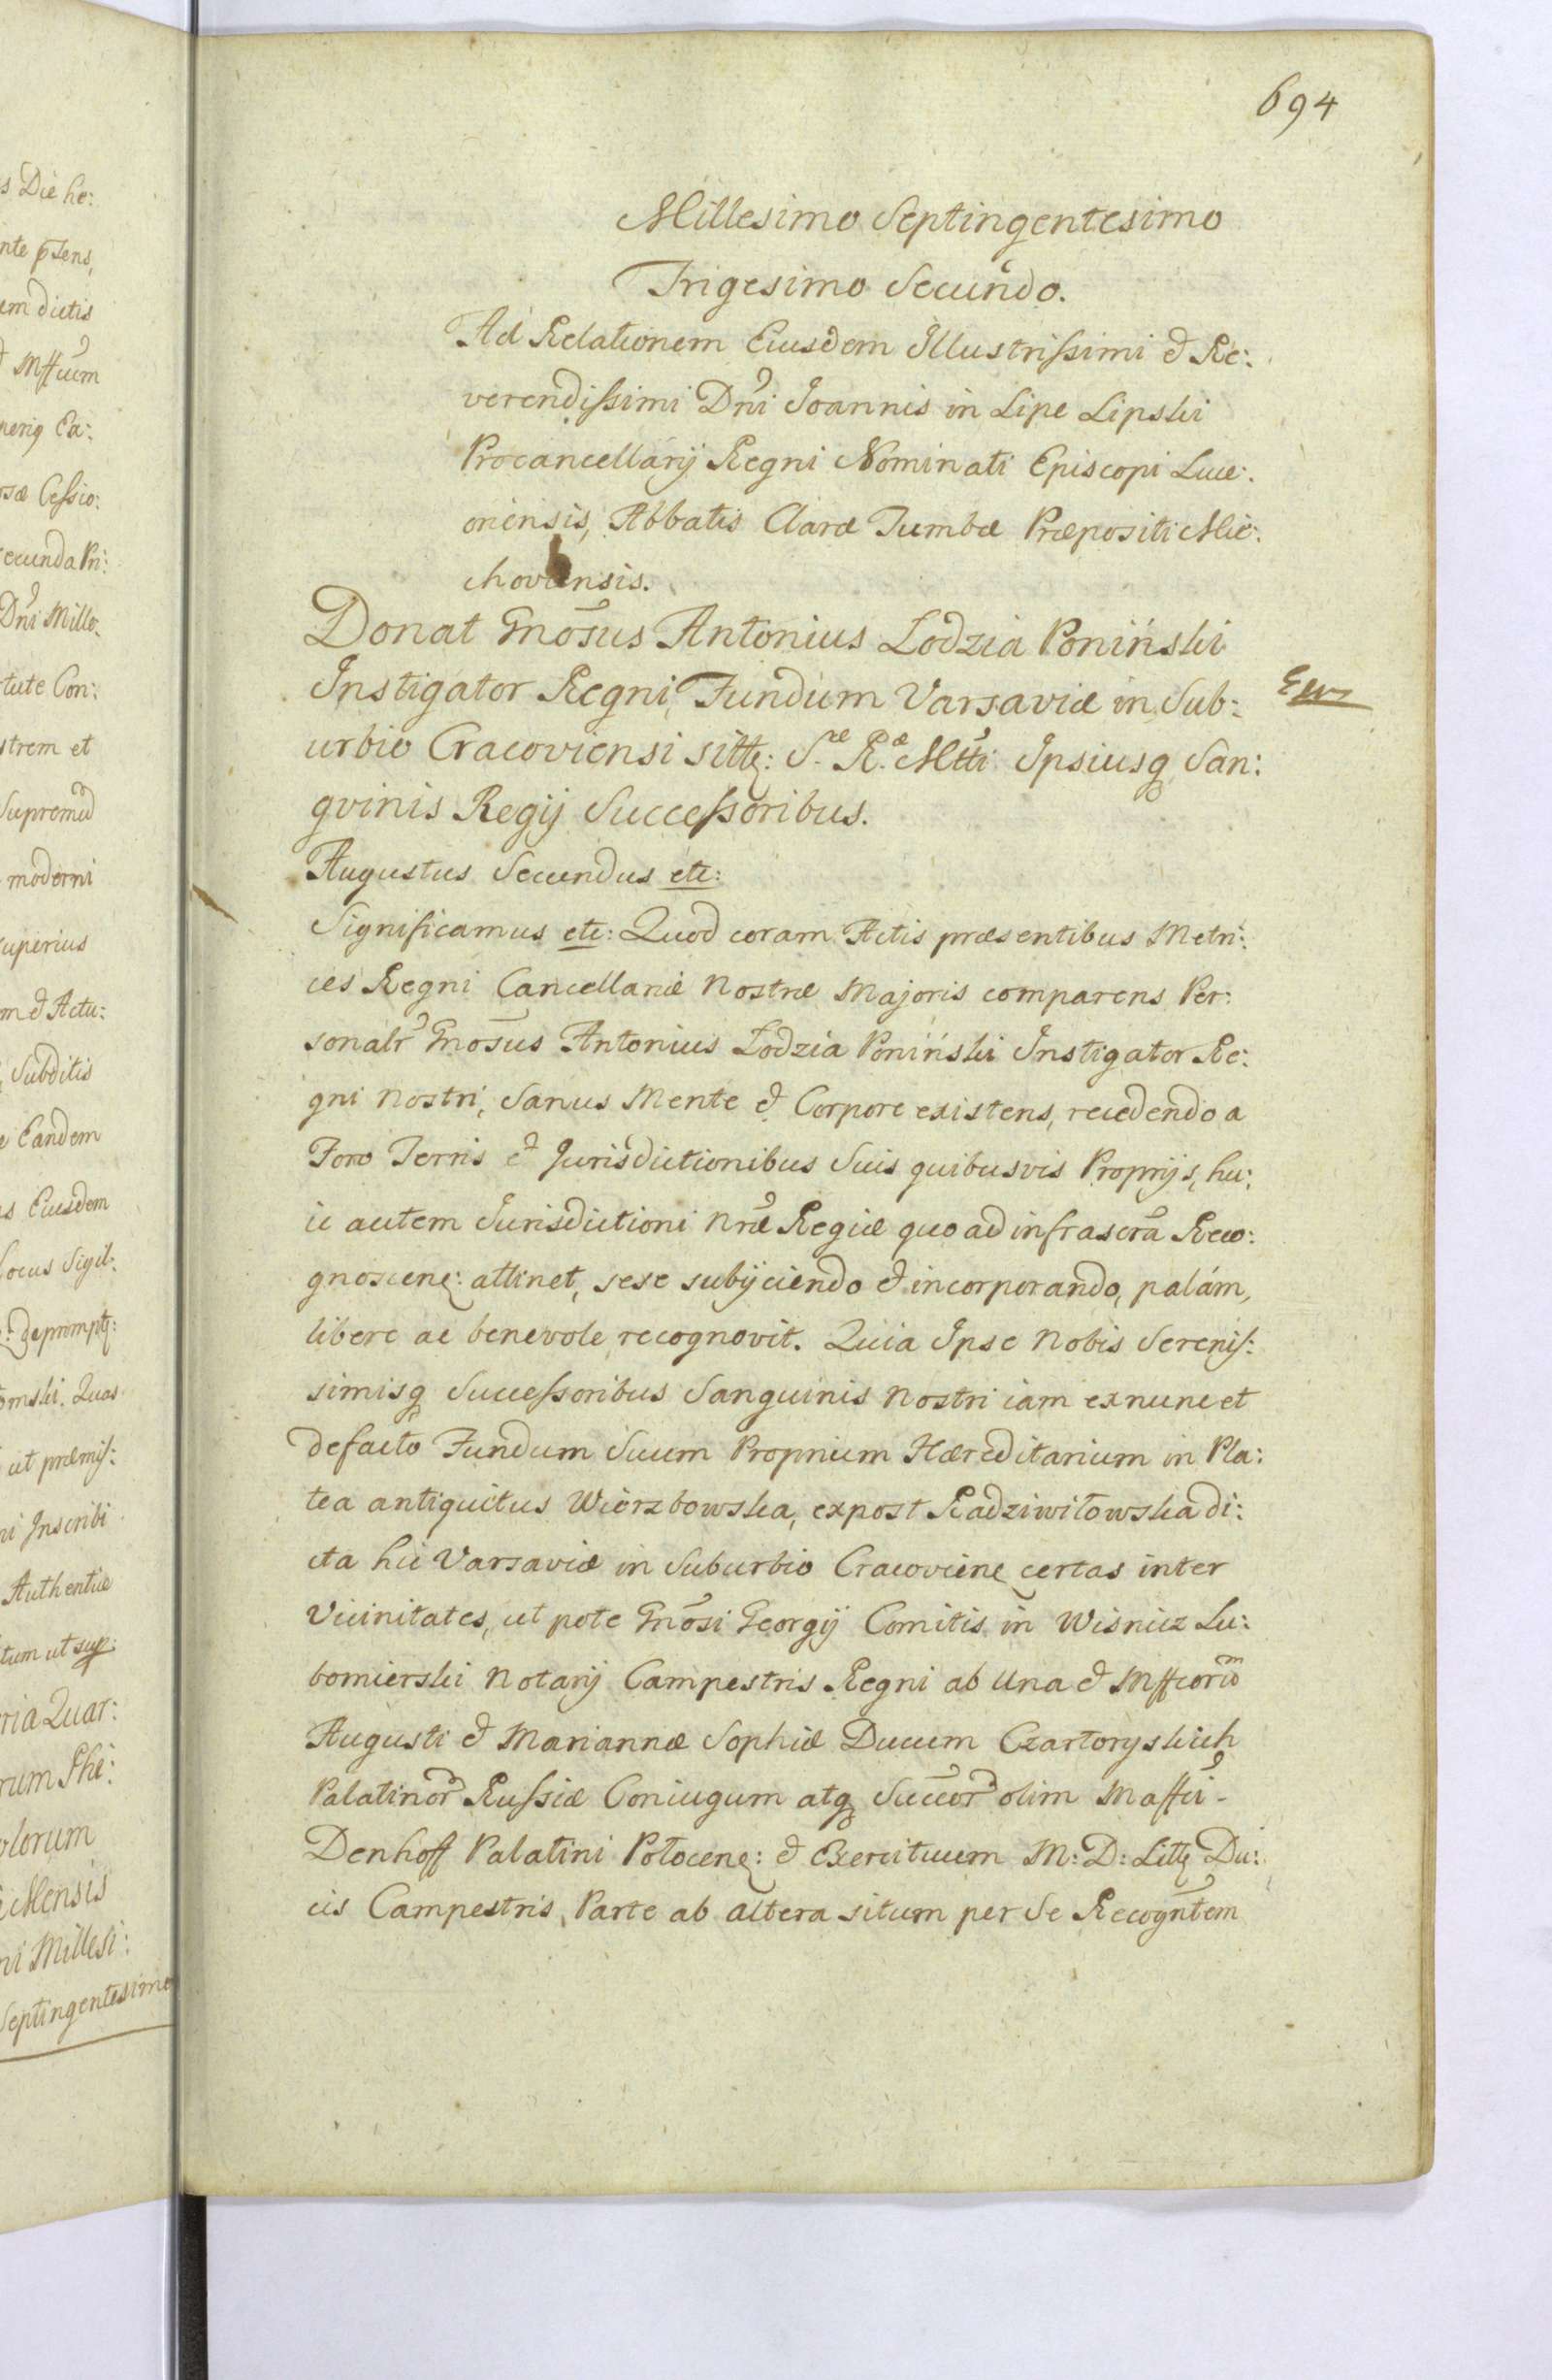 694
Millesimo Septingentesimo
Trigesimo Secundo.
Ad Relationem Eiusdem Illustrissimi & Re:
verendissimi Dni Joannis in Lipe Lipski
Procancellarij Regni Nominati Episcopi Luce:
oriensis, Abbatis Claræ Tumbæ Præpositi Mie:
choviensis.
Donat Gnosus Antonius Lodzia Poniński
Instigator Regni, Fundum Varsaviæ in Sub:
urbio Cracoviensi sittq: S.æ R.æ Mtti Ipsiusq San:
gvinis Regij Successoribus.
Augustus Secundus etc:
Significamus etc: Quod coram Actis præsentibus Metri:
ces Regni Cancellariæ Nostræ Majoris comparens Per:
sonalr Gnosus Antonius Lodzia Poniński Instigator Re:
gni Nostri, Sanus Mente & Corpore existens, recedendo a
Foro Terris & Jurisdictionibus Suis quibusvis Proprijs, hu:
ic autem Jurisdictioni Nræ Regiæ quo ad infrascra Reco:
gnoscenq: attinet, sese subijciendo & incorporando, palám,
libere ac benevole recognovit. Quia Ipse Nobis Serenis:
simisq Successoribus Sanguinis Nostri iam ex nunc et
de facto Fundum Suum Proprium Hæreditarium in Pla:
tea antiquitus Wierzbowska, expost Radziwiłowska di:
cta hic Varsaviæ in Suburbio Cracovienq certas inter
Vicinitates, ut pote Gnosi Georgij Comitis in Wisnicz Lu:
bomierski Notarij Campestris Regni ab una & Mffcorum
Augusti & Mariannæ Sophiæ Ducum Czartoryskich
Palatinor Russiæ Coniugum atq Succor olim Maffci
Denhoff Palatini Połocenq: & Exercituum M: D: Littq Du:
cis Campestris, Parte ab altera situm per Se Recogntem
s Die he:
em dictis
Mffcum
osæ Cessio:
ecunda Pri:
Dni Mille:
tute Con:
strem et
Supremu
moderni
superius
m & Actu:
Subditis
Eandem
s Eiusdem
Locus Sigil:
omski. Quas
ut præmis:
ni Inscribi
Authentice
tum ut sup:
ria Quar:
rum Phi:
olorum
Mensis
ni Millesi:
Septingentesimo